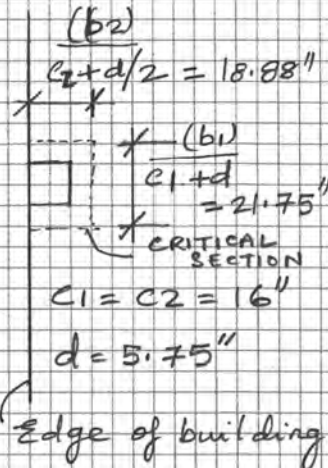 (b2)
C2+d/2 = 18.88"
(b1)
C1+d
= 21.75"
CRITICAL
SECTION
C1 = C2 = 16"
d = 5.75"
Edge of building